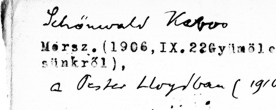 Schönwald Kabos
Mérsz.(1906,IX.22Gyümölc
sünkről),
a Pester Lloydban (191